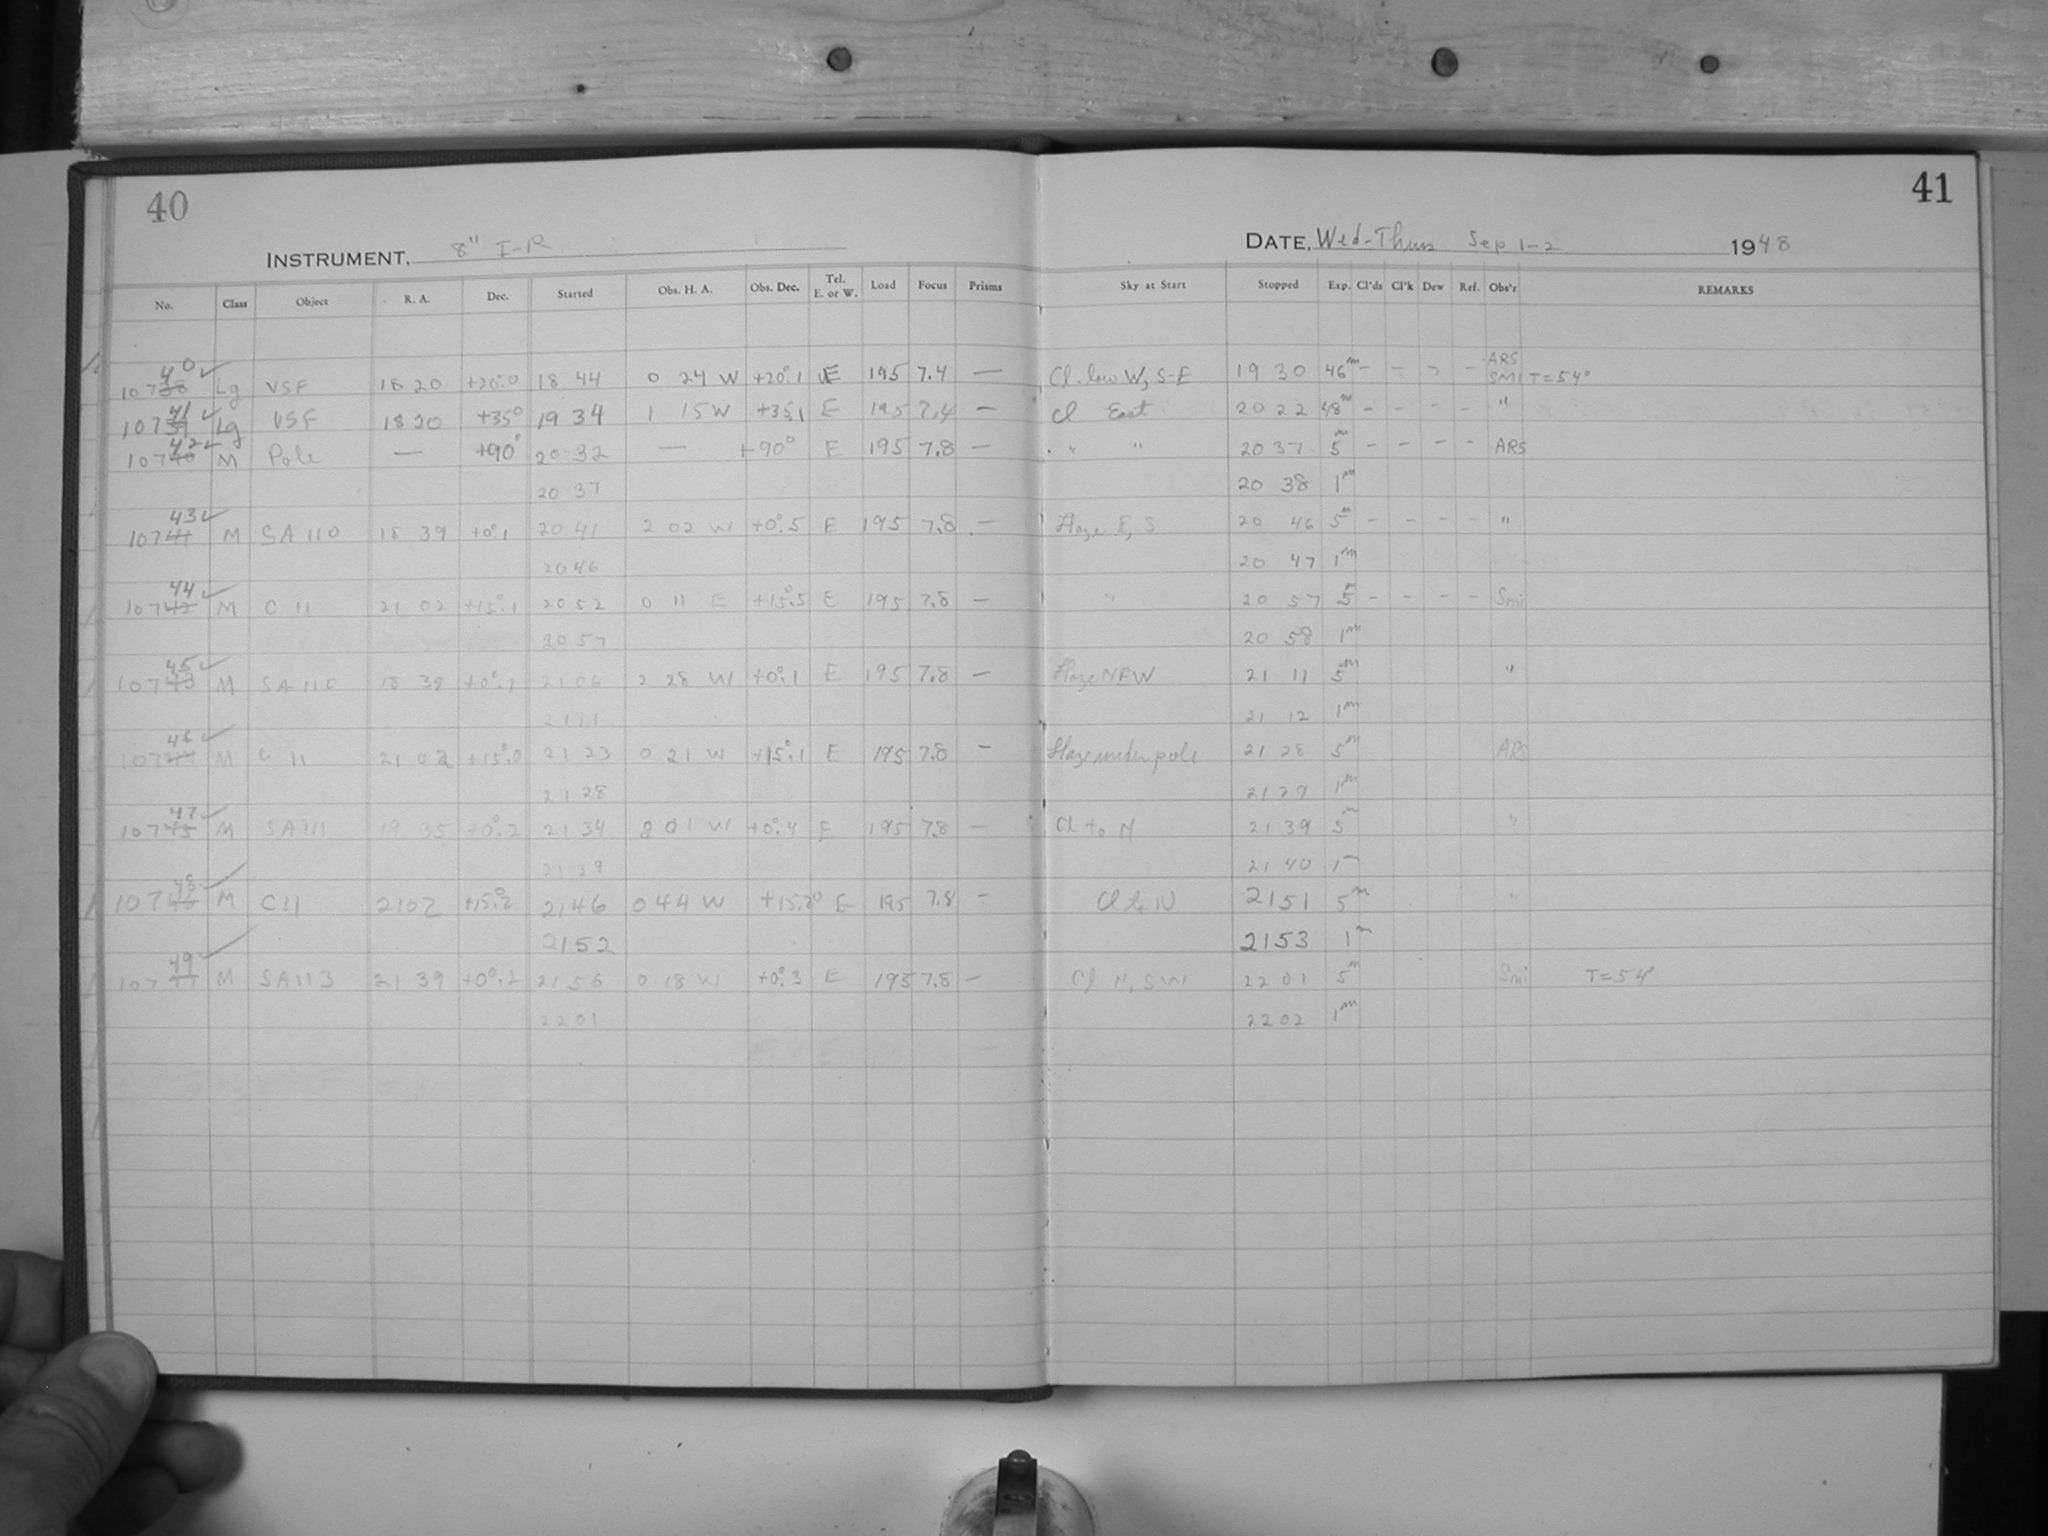 40
41
INSTRUMENT, 8" I-R
DATE, Wed-Thurs Sep 1-2 1948
No. Class Object R. A. Dec. Started Obs. H. A. Obs. Dec. Tel. E. or W. Load Focus Prisms Sky at Start Stopped Exp. Cl'ds Cl'k Dew Ref. Obs'r REMARKS
40 ✓ ARS
10738 Lg VSF 18 20 +20°.0 18 44 0 24 W +20°.1 E 195 7.4 — Cl. low W, S-E 19 30 46m - - - - SMi T=54°
41 ✓
10739 Lg VSF 18 20 +35° 19 34 1 15 W +35.1 E 195 7.4 — Cl East 20 22 48m - - - - "
42 ✓
10740 M Pole — +90° 20 32 — +90° E 195 7.8 — " " 20 37 5m - - - - ARS
20 37 20 38 1m
43 ✓
10741 M SA 110 18 39 +0°.1 20 41 2 02 W +0°.5 E 195 7.8 — Haze E, S 20 46 5m - - - - "
20 46 20 47 1m
44 ✓
10742 M C 11 21 02 +15°.1 20 52 0 11 E +15°.5 E 195 7.8 — " 20 57 5 - - - - Smi
20 57 20 58 1m
45 ✓
10743 M SA 110 18 39 +0°.1 21 06 2 28 W +0°.1 E 195 7.8 — Haze NEW 21 11 5m "
21 11 21 12 1m
46 ✓
10744 M C 11 21 02 +15°.0 21 23 0 21 W +15°.1 E 195 7.8 — Haze under pole 21 28 5m ARS
21 28 21 29 1m
47 ✓
10745 M SA 111 19 35 +0°.2 21 34 2 01 W +0°.4 E 195 7.8 — Cl to N 21 39 5m "
21 39 21 40 1m
48 ✓
10746 M C11 2102 +15°.2 2146 0 44 W +15.2° E 195 7.8 — Cl to N 2151 5m "
2152 2153 1m
49 ✓
10747 M SA113 21 39 +0°.2 21 56 0 18 W +0°.3 E 195 7.8 — Cl N, SW 22 01 5m Smi T=54°
22 01 22 02 1m